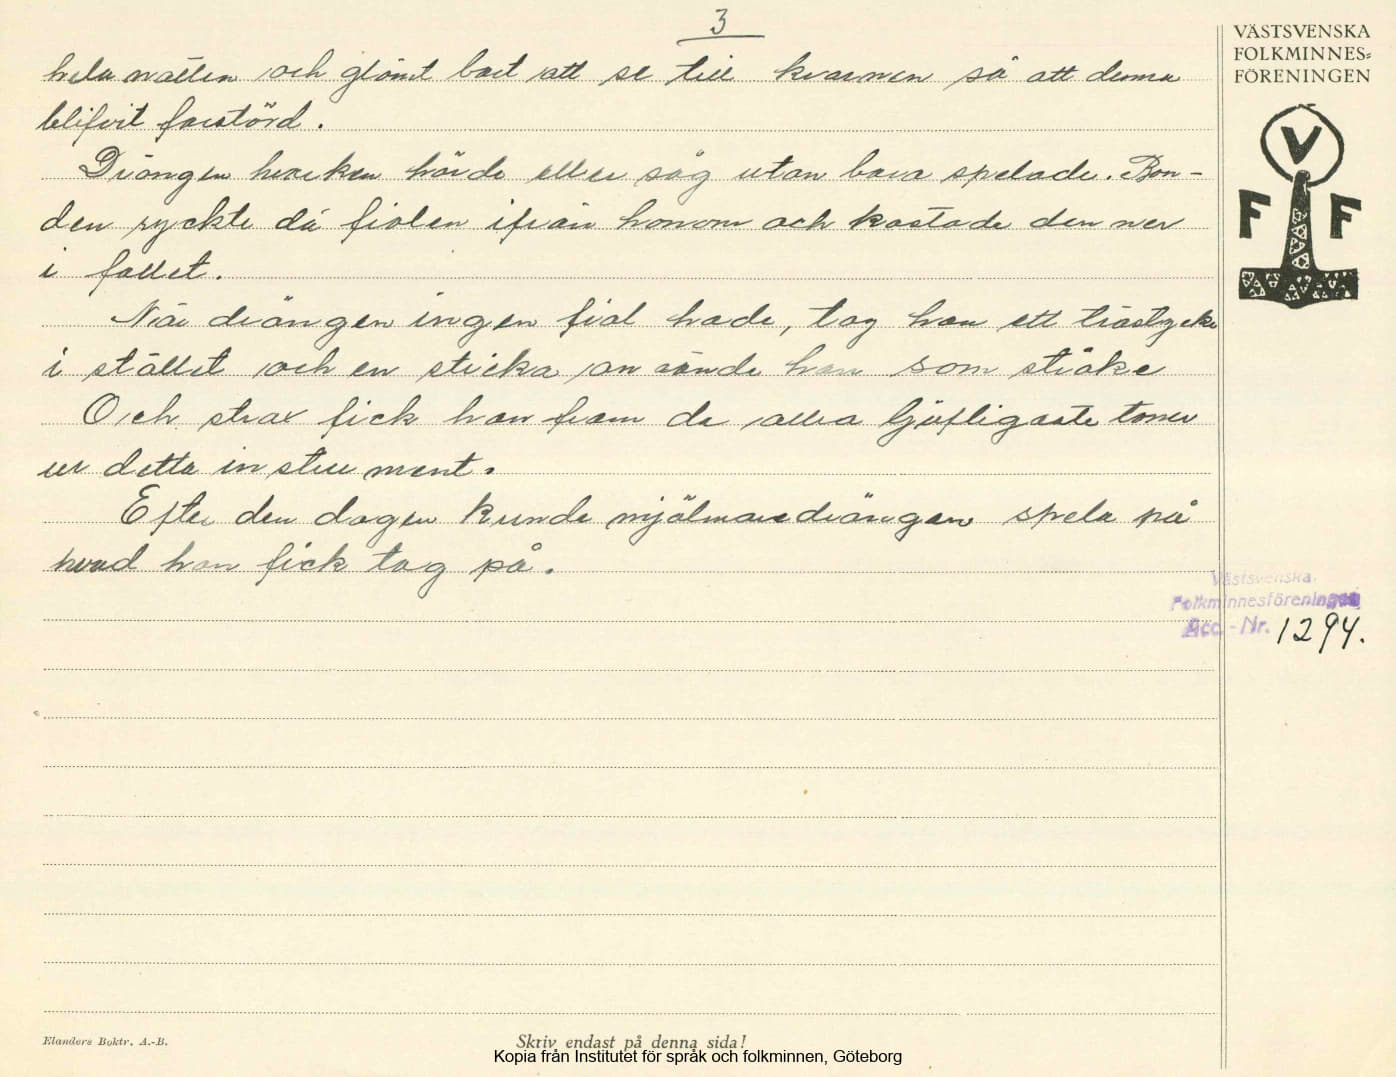 3
VÄSTSVENSKA
FOLKMINNES=
FÖRENINGEN
V
F F
hela natten och glömt bort att se till kvarnen så att denna
blifvit förstörd.
Drängen hvarken hörde eller såg utan bara spelade. Bon-
den ryckte då fiolen ifrån honom och kastade den ner
i fallet.
När drängen ingen fiol hade, tog han ett trästycke
i stället och en sticka använde han som stråke
Och strax fick han fram de allra ljufligaste toner
ur detta instrument.
Efter den dagen kunde mjölnaredrängen spela på
hvad han fick tag på.
Västsvenska
Folkminnesföreningen
Acc.-Nr. 1294.
Elanders Boktr. A.-B.
Skriv endast på denna sida!
Kopia från Institutet för språk och folkminnen, Göteborg